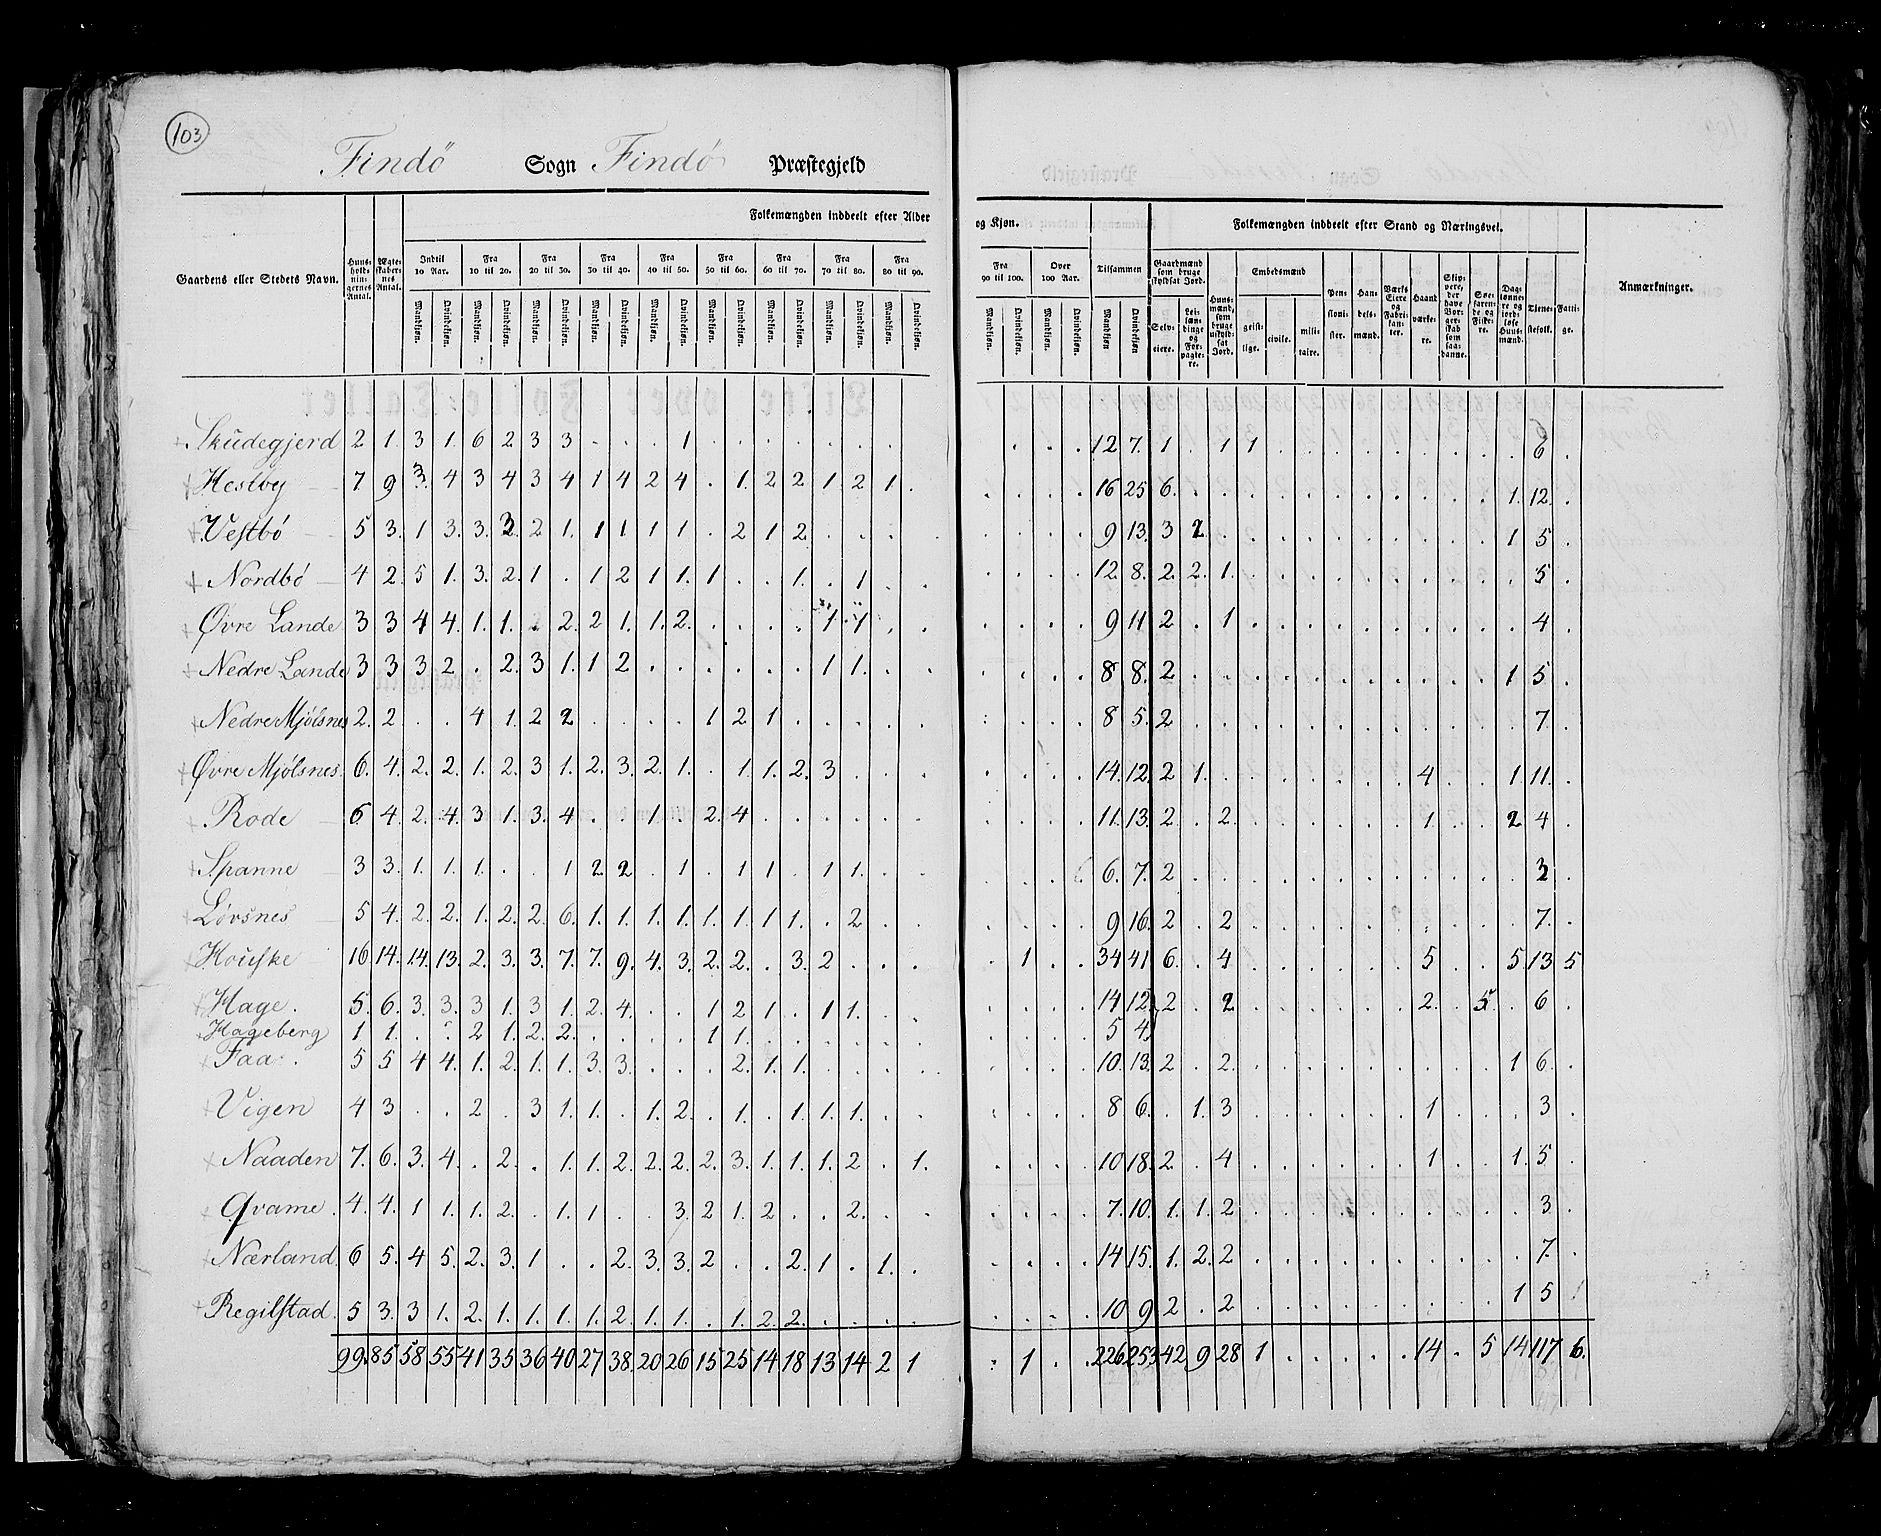 103
Findö Sogn Findó Præstegjeld
Folkemængden inddeelt efter Alder og Kjøn.
Folkemængden inddeelt efter Stand og Næringsvei.
Gaardens eller Stedets Navn. Huus-holdningernes Antal. Ægteskabernes Antal. Indtil 10 Aar. Fra 10 til 20. Fra 20 til 30. Fra 30 til 40. Fra 40 til 50. Fra 50 til 60. Fra 60 til 70. Fra 70 til 80. Fra 80 til 90. Fra 90 til 100. Over 100 Aar. Tilsammen Gaardmænd som bruge skyldsat Jord. Huusmænd, som bruge uskyldsat Jord. Embedsmænd Pensionister. Handelsmænd. Værks Eiere og Fabrikanter. Haandværkere. Skippere, der have Borgerskab som saadanne. Søefarende og Fiskere. Daglønnere og jordløse Huusmænd. Tjenestefolk. Fattige. Anmærkninger.
Mandkjøn. Qvindekjøn. Mandkjøn. Qvindekjøn. Mandkjøn. Qvindekjøn. Mandkjøn. Qvindekjøn. Mandkjøn. Qvindekjøn. Mandkjøn. Qvindekjøn. Mandkjøn. Qvindekjøn. Mandkjøn. Qvindekjøn. Mandkjøn. Qvindekjøn. Mandkjøn. Qvindekjøn. Mandkjøn. Qvindekjøn. Mandkjøn Qvindekjøn Selveiere. Leilændinge og Forpagtere. geistlige. civile. militaire.
Skudegjerd 2 1. 3 1. 6 2 3 3 . . . 1 . . . . . . . . . . . 12 7. 1 . 1 1 . . . . . . . . . 6 .
Hesbøy 7 9 3. 4 3 4 3 4 1 4 2 4 . 1. 2 2 1. 2 1. . . . . . 16 25 6. . . . . . . . . . . . 1. 12. .
Vestbó 5 3. 1 3. 3. 2. 2 1. 1 1 1 1 . 2 1 2. . . . . . . . . 9 13. 3 2 . . . . . . . . . . 1 5 .
Nordbó 4 2. 5 1. 3. 2. 1 . 1 2 1 1. 1 . . 1. . 1 . . . . . . 12. 8. 2. 2. 1. . . . . . . . . . . 5 .
Øvre Lande 3 3 4 4. 1. 1. . 2. 2 1. 1. 2. . . . . 1. 1 . . . . . . 9 11 2 . 1 . . . . . . . . . . 4 .
Nedre Lande 3 3 3 2 . 2. 3 1. 1 2 . . . . . . 1 1. . . . . . . 8 8. 2 . . . . . . . . . . . 1 5 .
Nedre Mjólsnes 2. 2 . . 4 1. 2 2 . . . . 1 2 1 . . . . . . . . . 8 5. 2 . . . . . . . . . . . . 7. .
Øvre Mjólsnes. 6. 4. 2. 2. 1. 2. 3 1. 2. 3. 2. 1. . 1. 1. 2. 3 . . . . . . . 14. 12. 2 1. . . . . . . . 4 . . 1 11. .
Rode 6 4. 2. 4. 3 1. 3. 4 . . 1. . 2. 4 . . . . . . . . . . 11. 13. 2 . 2. . . . . . . 1. . . 2 4 .
Spanne 3 3. 1. 1. 1. . . 1 2 2 . 1 . 1 1 . 1 1. . . . . . . 6. 7. 2 . . . . . . . . . . . . 3 .
Lóvsnes 5 4. 2. 2. 1. 2. 2. 6. 1. 1. 1. 1. 1. 1. 1 1. . 2 . . . . . . 9 16. 2 . 2 . . . . . . . . . . 7. .
Houske 16. 14. 14. 13. 2. 3. 3. 7. 7. 9. 4. 3. 2. 2. . 3. 2 . . . . 1 . . 34 41 6. . 4 . . . . . . 5 . . 5 13 5
Hage. 5. 6. 3. 3. 3 1. 3 1. 2. 4. . . 1 2 1. . 1 1. . . . . . . 14 12. 2 . 2 . . . . . . 2. . 5. . 6 .
Hageberg 1 1. . . 2 1. 2. 2. . . . . 1 1. . . . . . . . . . . 5 4
Faa. 5 5 4 4. 1. 2. 1. 1. 3. 3. . . . 2. 1. 1. . . . . . . . . 10. 13. 2 . 2. . . . . . . . . . 1 6. .
Vigen 4 3 . . 2 . 3 1. 1. . 1. 2. . 1. . 1. 1. 1. . . . . . . 8 6. . 1. 3 . . . . . . 1 . . . 3 .
Naaden 7. 6. 3. 4. . 2. . 1. 1. 2. 2. 2. 2. 3. 1. 1. 1. 2 . 1. . . . . 10 18. 2 . 4 . . . . . . 1 . . 1. 5 .
Qvame. 4. 4. 1 1. 1. 2. . 1. 1 . . 3. 2 1. 2 . . 2. . . . . . . 7. 10. 1. 1. 2 . . . . . . . . . . 3. .
Nærland. 6 5. 4 5. 2. 3. 1 . . 2. 3. 3. 2 . . 2. 1 . 1. . . . . . 14 15. 1. 2. 2 . . . . . . . . . . 7. .
Regilstad. 5 3. 3 1. 2. 1. 1. 1. 1. 2. 1. 1. . 1. 2. 2. . . . . . . . . 10 9 2 . 2 . . . . . . . . . 1 5 1
99. 85 58 55 41 35. 36 40 27 38. 20 26 15 25 14 18 13 14 2 1 . 1 . . 226 253 42 9 28 1 . . . . . 14 . 5 14 117 6.